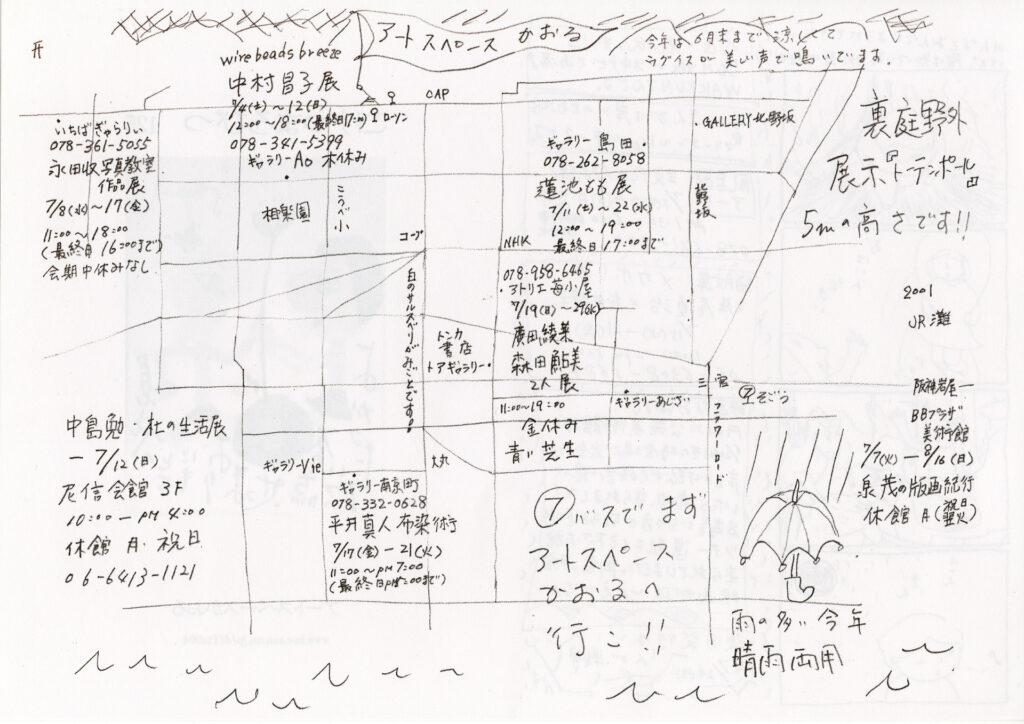 アートスペース かおる
今年は6月末まで涼しくて
ウグイスが美しい声で鳴いてます。
wire beads breeze
中村昌子展
7/4(土)〜12(日)
12:00〜18:00(最終日17:00)
078-341-5399
ギャラリーAO 木休み
ローソン
CAP
いちばぎゃらりぃ
078-361-5055
永田収写真教室
作品展
7/8(水)〜17(金)
11:00〜18:00
(最終日16:00まで)
会期中休みなし
相楽園
こうべ小
コープ
白のサルスベリがみごとです。
NHK
GALLERY北野坂
ギャラリー島田
078-262-8058
蓮池もも展
7/11(土)〜22(水)
12:00〜19:00
最終日17:00まで
北野坂
裏庭野外
展示『トーテンポール』
5mの高さです!!
2001
JR灘
078-958-6465
アトリエ苺小屋
7/19(日)〜29(水)
廣田綾菜
森田鮎美
2人展
11:00〜19:00
金休み
青い芝生
トンカ
書店
トアギャラリー
ギャラリーあじさい
三宮
フラワーロード
⑦そごう
阪神岩屋
BBプラザ
美術館
7/7(火)―8/16(日)
泉茂の版画紀行
休館 月(祝日翌火)
中島勉・杜の生活展
―7/12(日)
尼信会館 3F
10:00―PM 4:00
休館 月・祝日
06-6413-1121
ギャラリーVie
大丸
ギャラリー南京町
078-332-0628
平井真人布染術
7/17(金)―21(火)
11:00〜PM7:00
⑦バスでます
アートスペース
かおるへ
行こ!!
雨の多い今年
晴雨両用